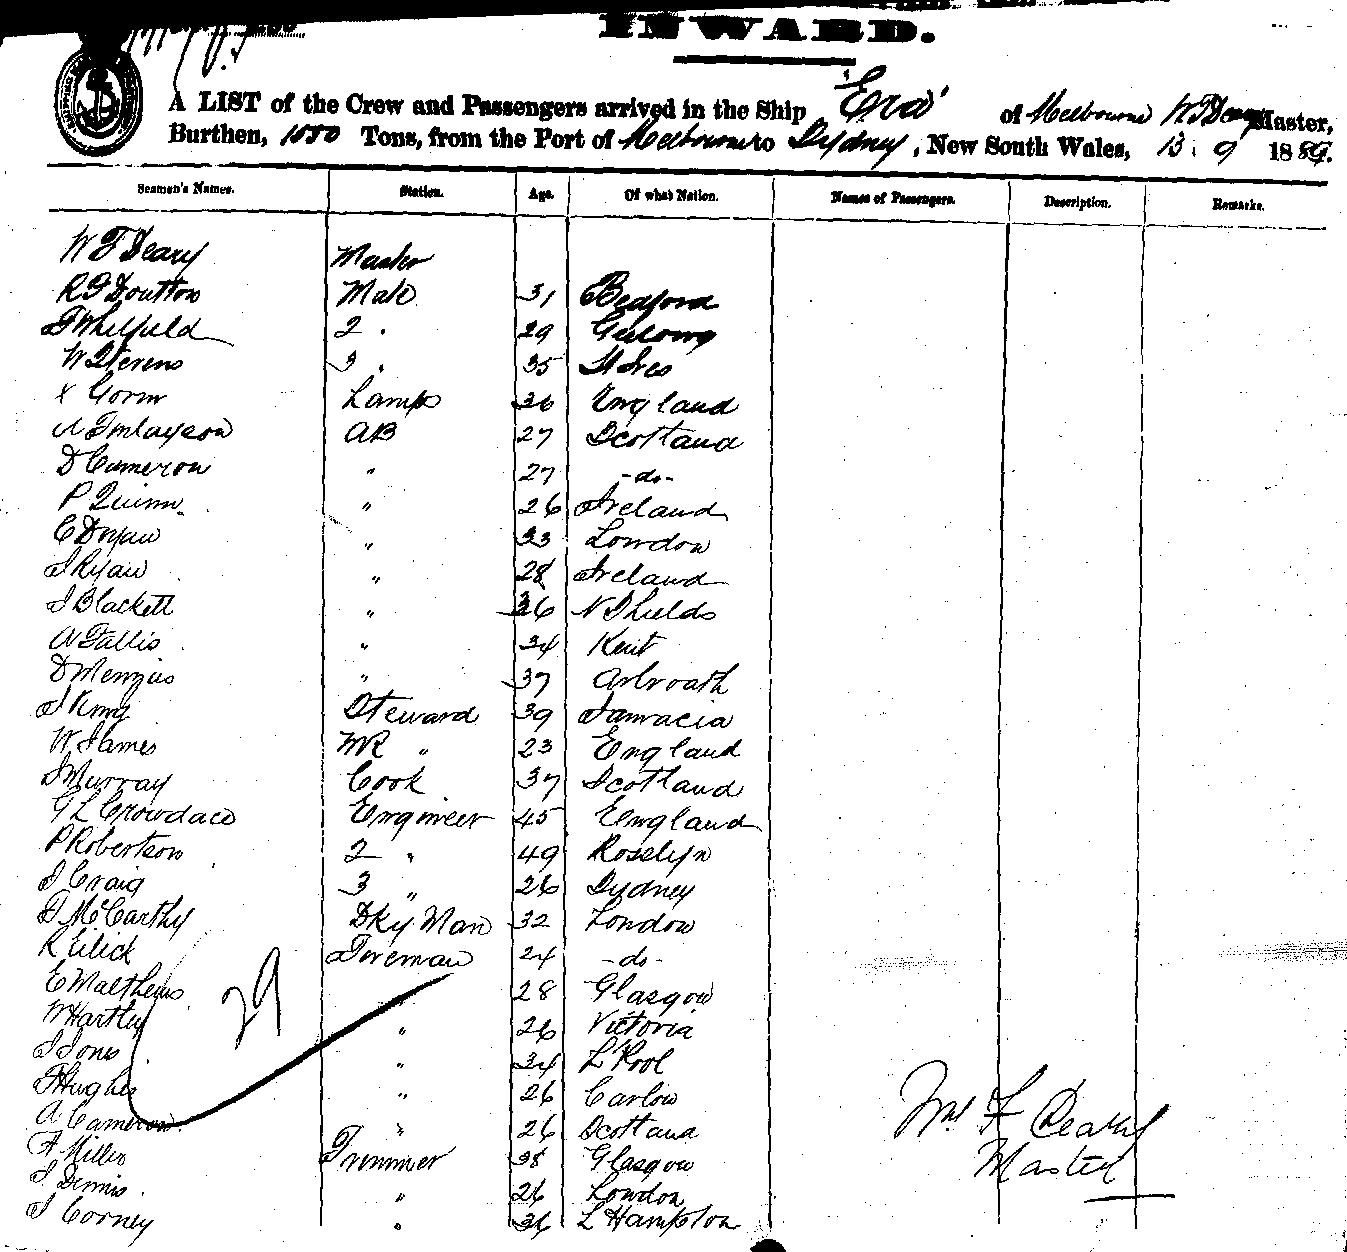 INWARD.
A LIST of the Crew and Passengers arrived in the Ship "Era" of Melbourne W F Deary Master,
Burthen, 1550 Tons, from the Port of Melbourne to Sydney, New South Wales, 13. 9 1889.
Seamen's Names. Station. Age. Of what Nation. Names of Passengers. Description. Remarks.
W F Deary Master
R G Doutton Mate 31 Bedford
F Whilfield 2 . 29 Geelong
W Stevens 3 . 35 St Ives
x Gorm Lamps 36 England
A Finlayson AB 27 Scotland
D Cameron " 27 -do-
P Quinn " 26 Ireland
C Doyau " 33 London
J Ryan " 28 Ireland
J Blackett " 36 N Shields
A Fallis " 34 Kent
D Menzies " 37 Arbroath
J King Steward 39 Jamacia
W James MR " 23 England
J Murray Cook 37 Scotland
G L Crowdace Engineer 45 England
P Robertson 2 " 49 Roselyn
J Craig 3 " 26 Sydney
J McCarthy Dky Man 32 London
R Elick Foreman 24 -do-
E Matthews " 28 Glasgow
W Hartley " 26 Victoria
29
J Jones " 34 L'Pool
F Hughes " 26 Carlow
A Cameron " 26 Scotland
A Millis Trimmer 38 Glasgow
J Dennis " 26 London
J Corney " 36 L Hampton
Wm F Deary
Master